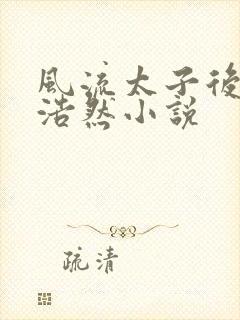 風流太子後
浩然小説
疏清